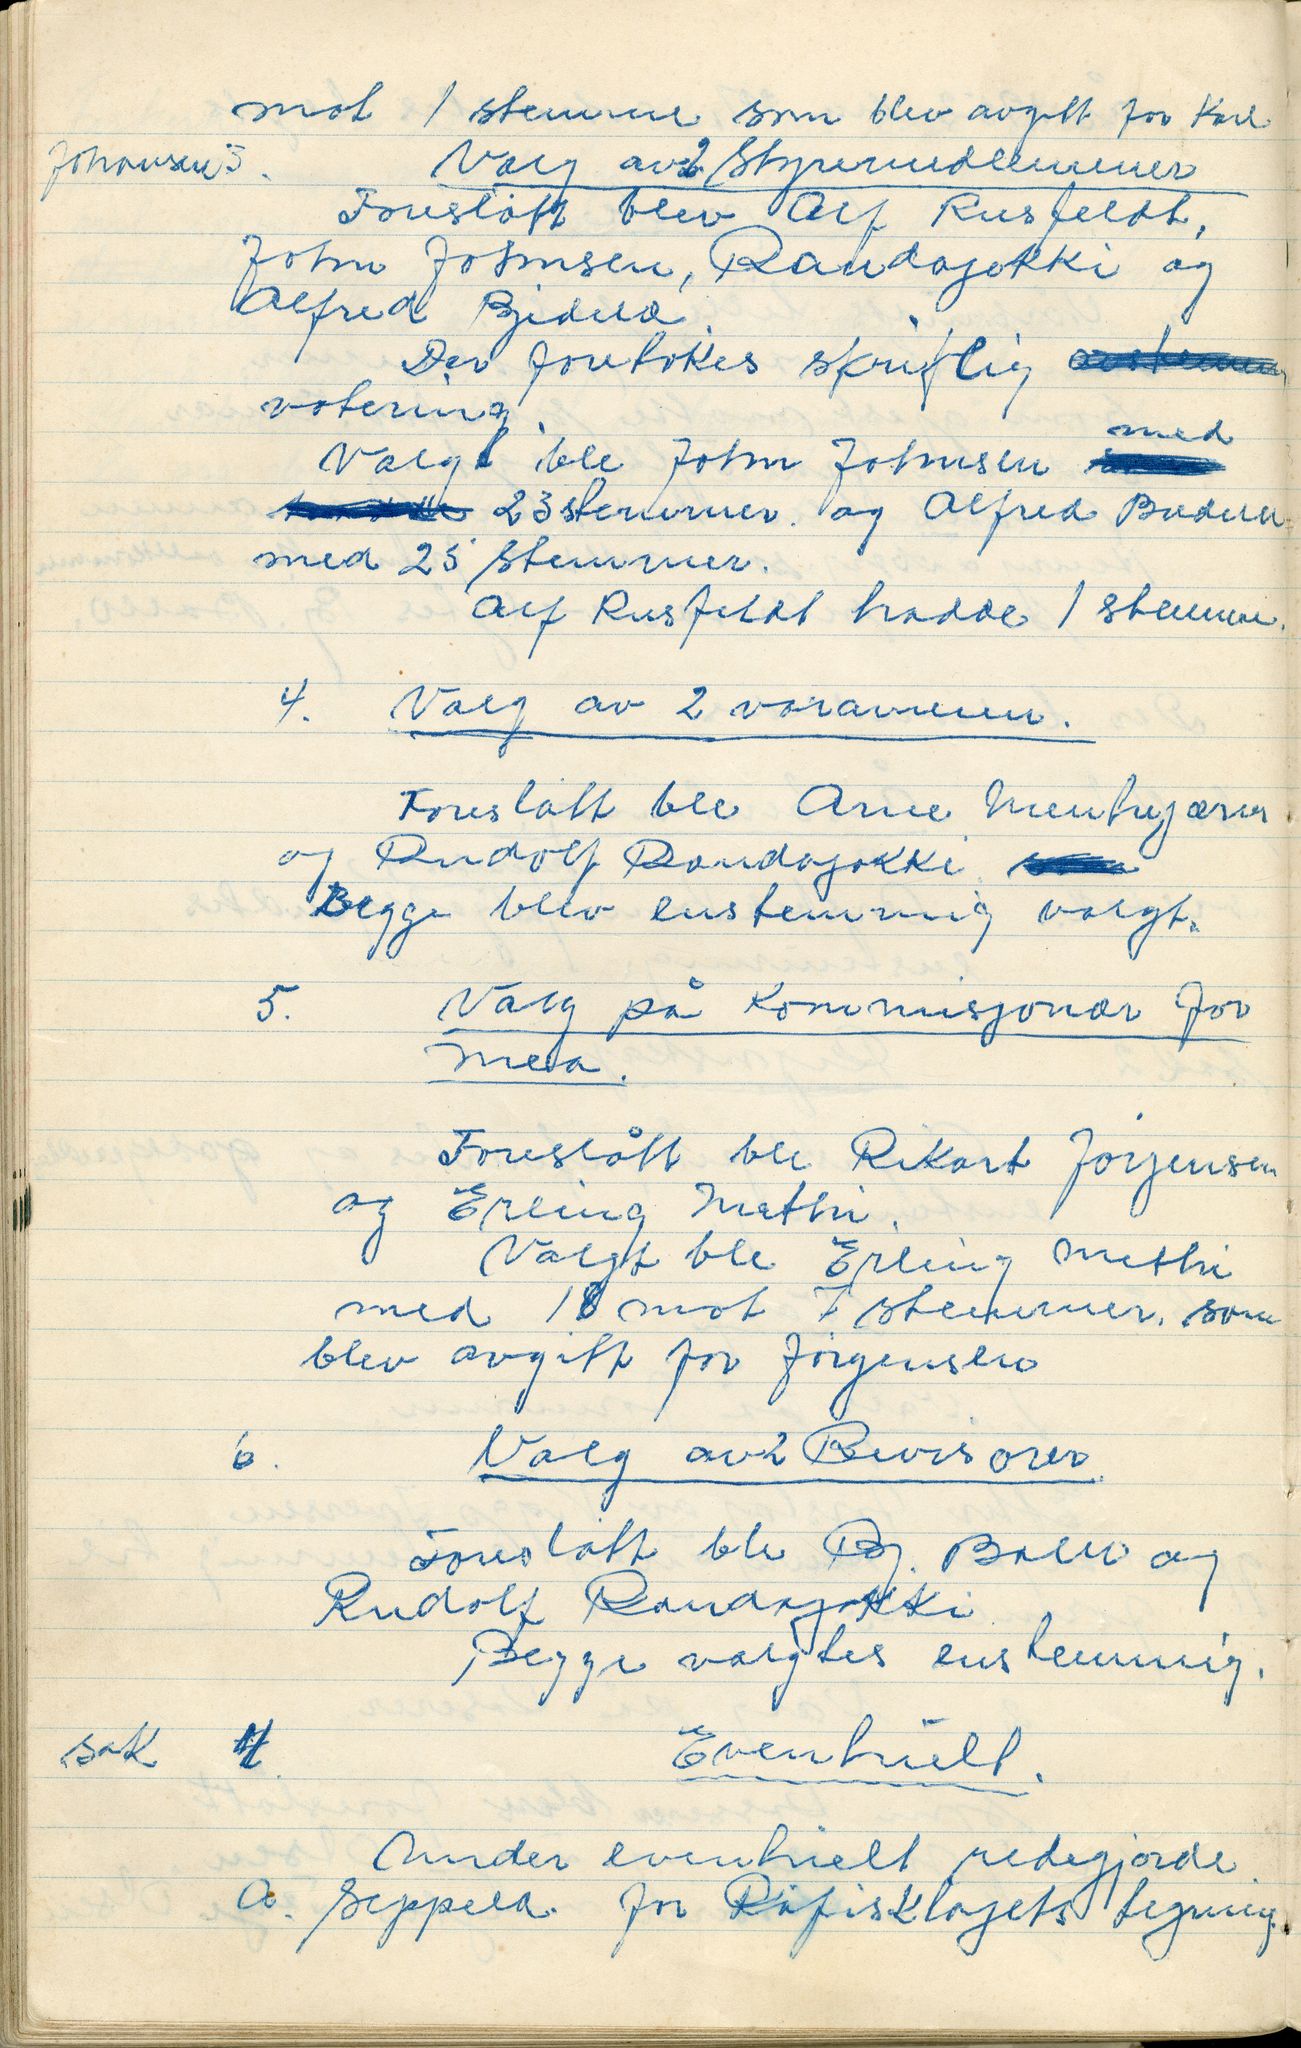 mot 1 stemme som blev avgitt for Karl
Johansen 3. Valg av 2 Styremedlemmer
Foreslått blev Alf Rusfeldt,
John Johnsen, Randajokki og
Alfred
Der foretokes skriftlig
votering.
Valgt ble John Johnsen med
23 stemmer. og Alfred
med 25 stemmer.
Alf Rusfeldt hadde 1 stemme.
4. Valg av 2 varamenn.
Foreslått ble Arne
og Rudolf Randajokki.
Begge blev enstemmig valgt.
5. Valg på Kommisjonær for
Foreslått ble Rikart Jørgensen
og Erling Methi.
Valgt ble Erling Methi
med 18 mot 7 stemmer. som
blev avgitt for Jørgensen
6. Valg av 2 Revisorer.
Foreslått ble Bj. Ballo og
Rudolf Randajokki
Begge valgtes enstemmig.
sak 4. Eventuelt.
Under eventuelt redegjorde
A. Seppelä for Råfisklagets tegning